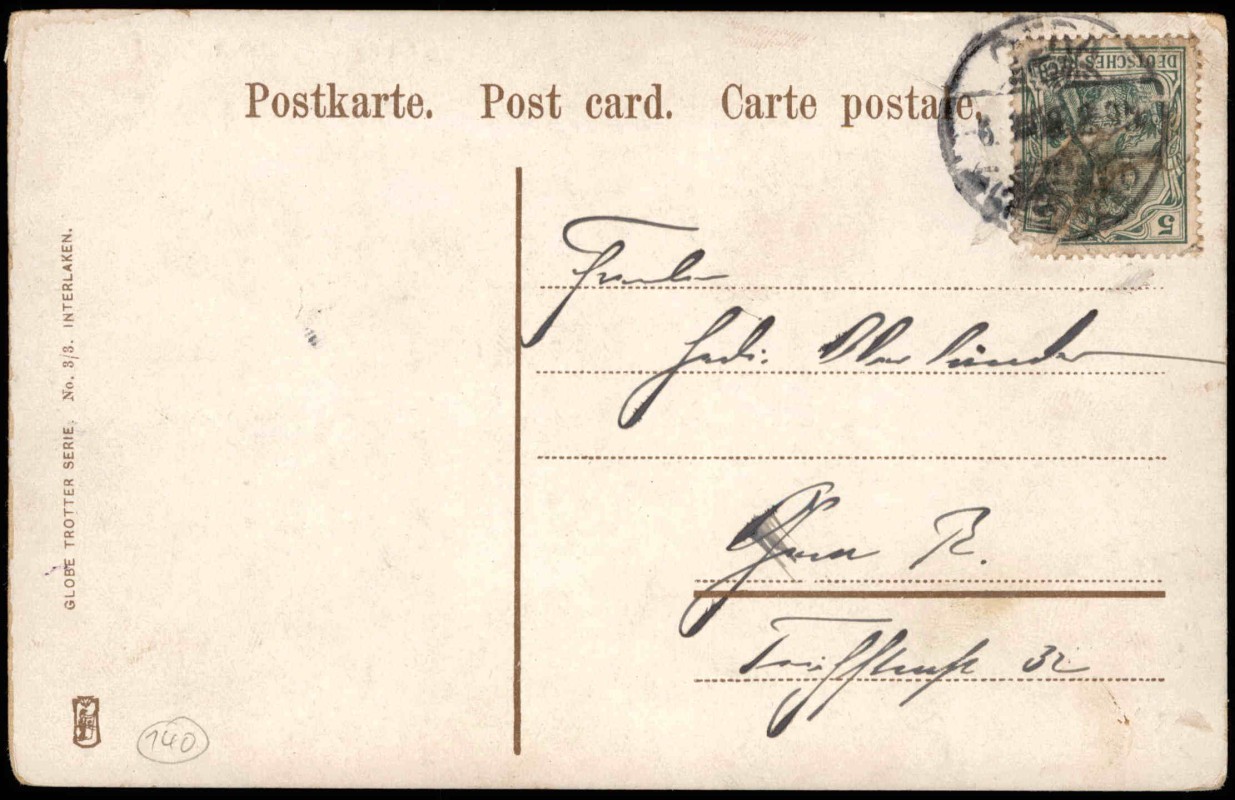 Postkarte. Post card. Carte postale.
DEUTSCHES REICH
5
5
GLOBE TROTTER SERIE. No. 3/3. INTERLAKEN.
Fräulein
Hedi. Oberländer
Gera R.
32
140